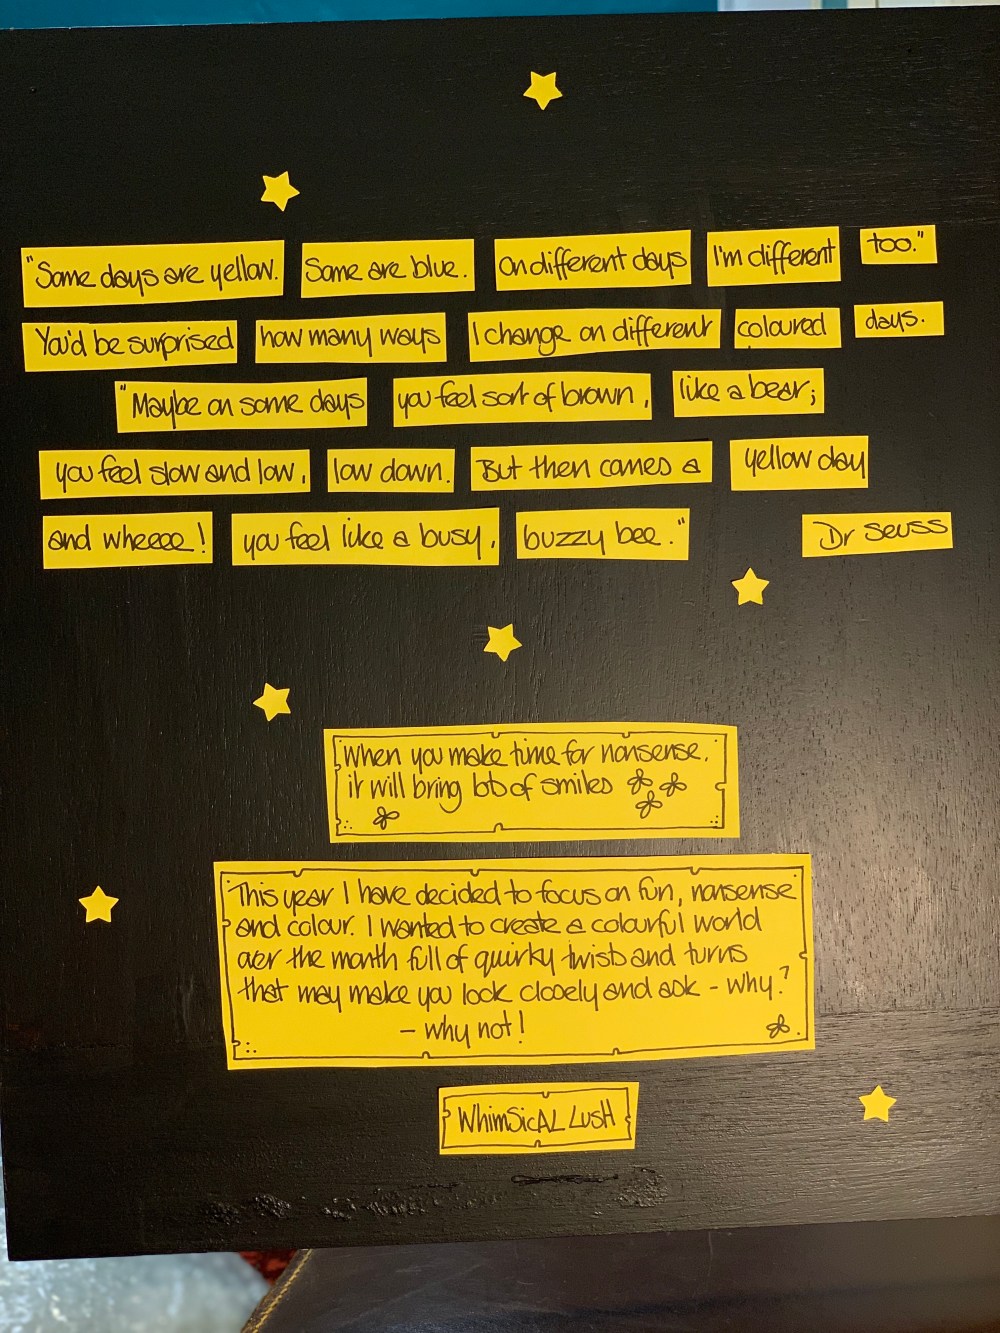 "Some days are yellow. Some are blue. On different days I'm different too."
You'd be surprised how many ways I change on different coloured days.
"Maybe on some days you feel sort of brown, like a bear;
you feel slow and low, low down. But then comes a yellow day
and wheeee! you feel like a busy, buzzy bee." Dr Seuss
When you make time for nonsense,
it will bring lots of smiles
This year I have decided to focus on fun, nonsense
and colour. I wanted to create a colourful world
over the month full of quirky twists and turns
that may make you look closely and ask - why?
- why not!
WhimSicAL LusH